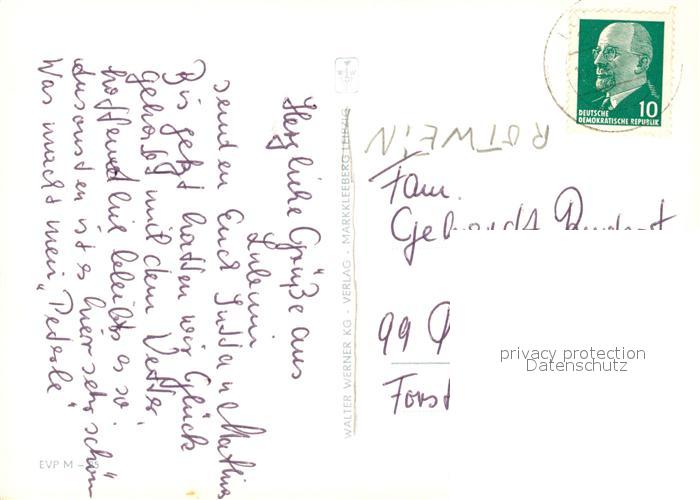 Herzliche Grüße aus
Lubmin
senden Euch Jutta u. Mathias
Bis jetzt hatten wir Glück
gehabt mit dem Wetter,
hoffentlich bleibt es so.
Ansonsten ist es hier sehr schön
Was macht mein "Pederle"
EVP M –
WALTER WERNER KG · VERLAG · MARKKLEEBERG LEIPZIG
DEUTSCHE
DEMOKRATISCHE REPUBLIK
10
ROTWEIN
Fam.
99
Forst
privacy protection
Datenschutz